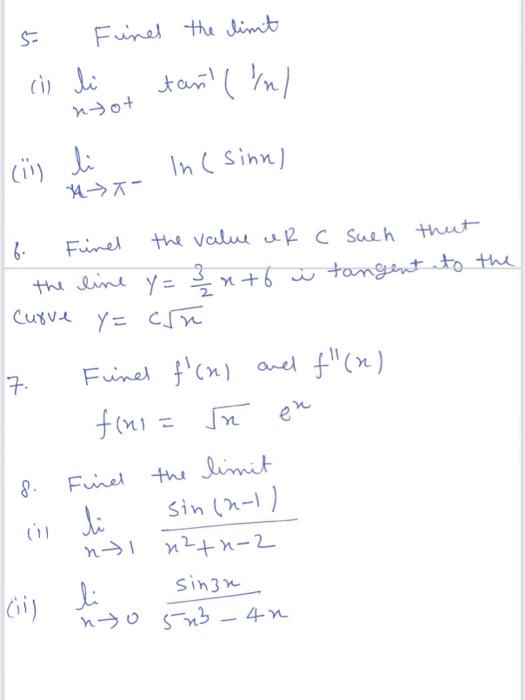 5= Find the limit
(i) li tan⁻¹ ( 1/x )
x→0+
(ii) li ln ( sinx )
x→π-
6. Find the value of C such that
the line y = 3/2 x + 6 is tangent to the
curve y = c√x
7. Find f'(x) and f''(x)
f(x) = √x eˣ
8. Find the limit
(i) li sin (x-1) / x²+x-2
x→1
(ii) li sin3x / 5x³ - 4x
x→0